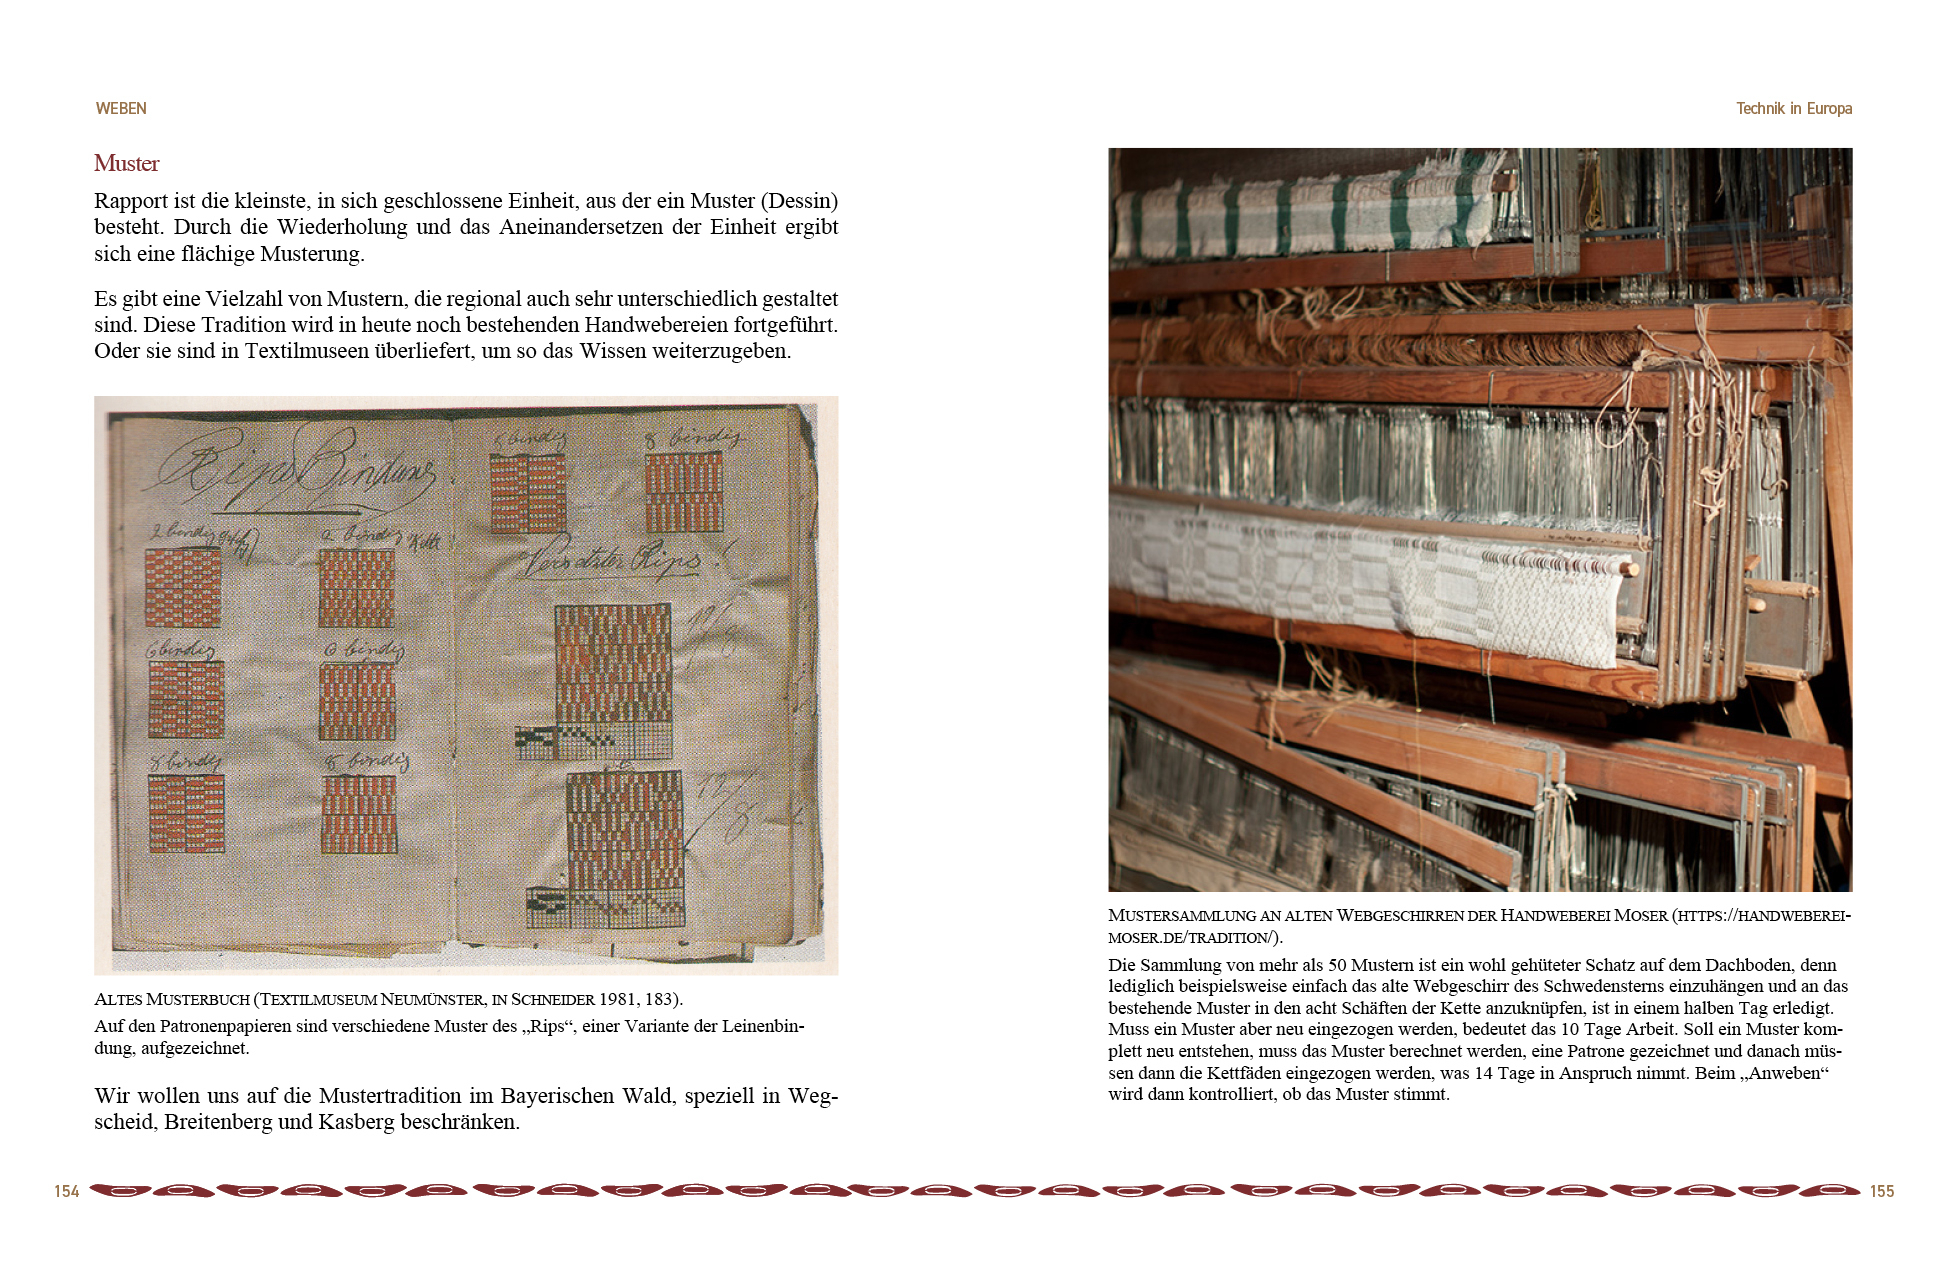 WEBEN
Muster
Rapport ist die kleinste, in sich geschlossene Einheit, aus der ein Muster (Dessin)
besteht. Durch die Wiederholung und das Aneinandersetzen der Einheit ergibt
sich eine flächige Musterung.
Es gibt eine Vielzahl von Mustern, die regional auch sehr unterschiedlich gestaltet
sind. Diese Tradition wird in heute noch bestehenden Handwebereien fortgeführt.
Oder sie sind in Textilmuseen überliefert, um so das Wissen weiterzugeben.
Rips Bindung.
2 bindig
2 bindig Kette
6 bindig
6 bindig
8 bindig
8 bindig
bindig
8 bindig
Versetzter Rips!
ALTES MUSTERBUCH (TEXTILMUSEUM NEUMÜNSTER, IN SCHNEIDER 1981, 183).
Auf den Patronenpapieren sind verschiedene Muster des „Rips“, einer Variante der Leinenbin-
dung, aufgezeichnet.
Wir wollen uns auf die Mustertradition im Bayerischen Wald, speziell in Weg-
scheid, Breitenberg und Kasberg beschränken.
154
Technik in Europa
MUSTERSAMMLUNG AN ALTEN WEBGESCHIRREN DER HANDWEBEREI MOSER (HTTPS://HANDWEBEREI-
MOSER.DE/TRADITION/).
Die Sammlung von mehr als 50 Mustern ist ein wohl gehüteter Schatz auf dem Dachboden, denn
lediglich beispielsweise einfach das alte Webgeschirr des Schwedensterns einzuhängen und an das
bestehende Muster in den acht Schäften der Kette anzuknüpfen, ist in einem halben Tag erledigt.
Muss ein Muster aber neu eingezogen werden, bedeutet das 10 Tage Arbeit. Soll ein Muster kom-
plett neu entstehen, muss das Muster berechnet werden, eine Patrone gezeichnet und danach müs-
sen dann die Kettfäden eingezogen werden, was 14 Tage in Anspruch nimmt. Beim „Anweben“
wird dann kontrolliert, ob das Muster stimmt.
155